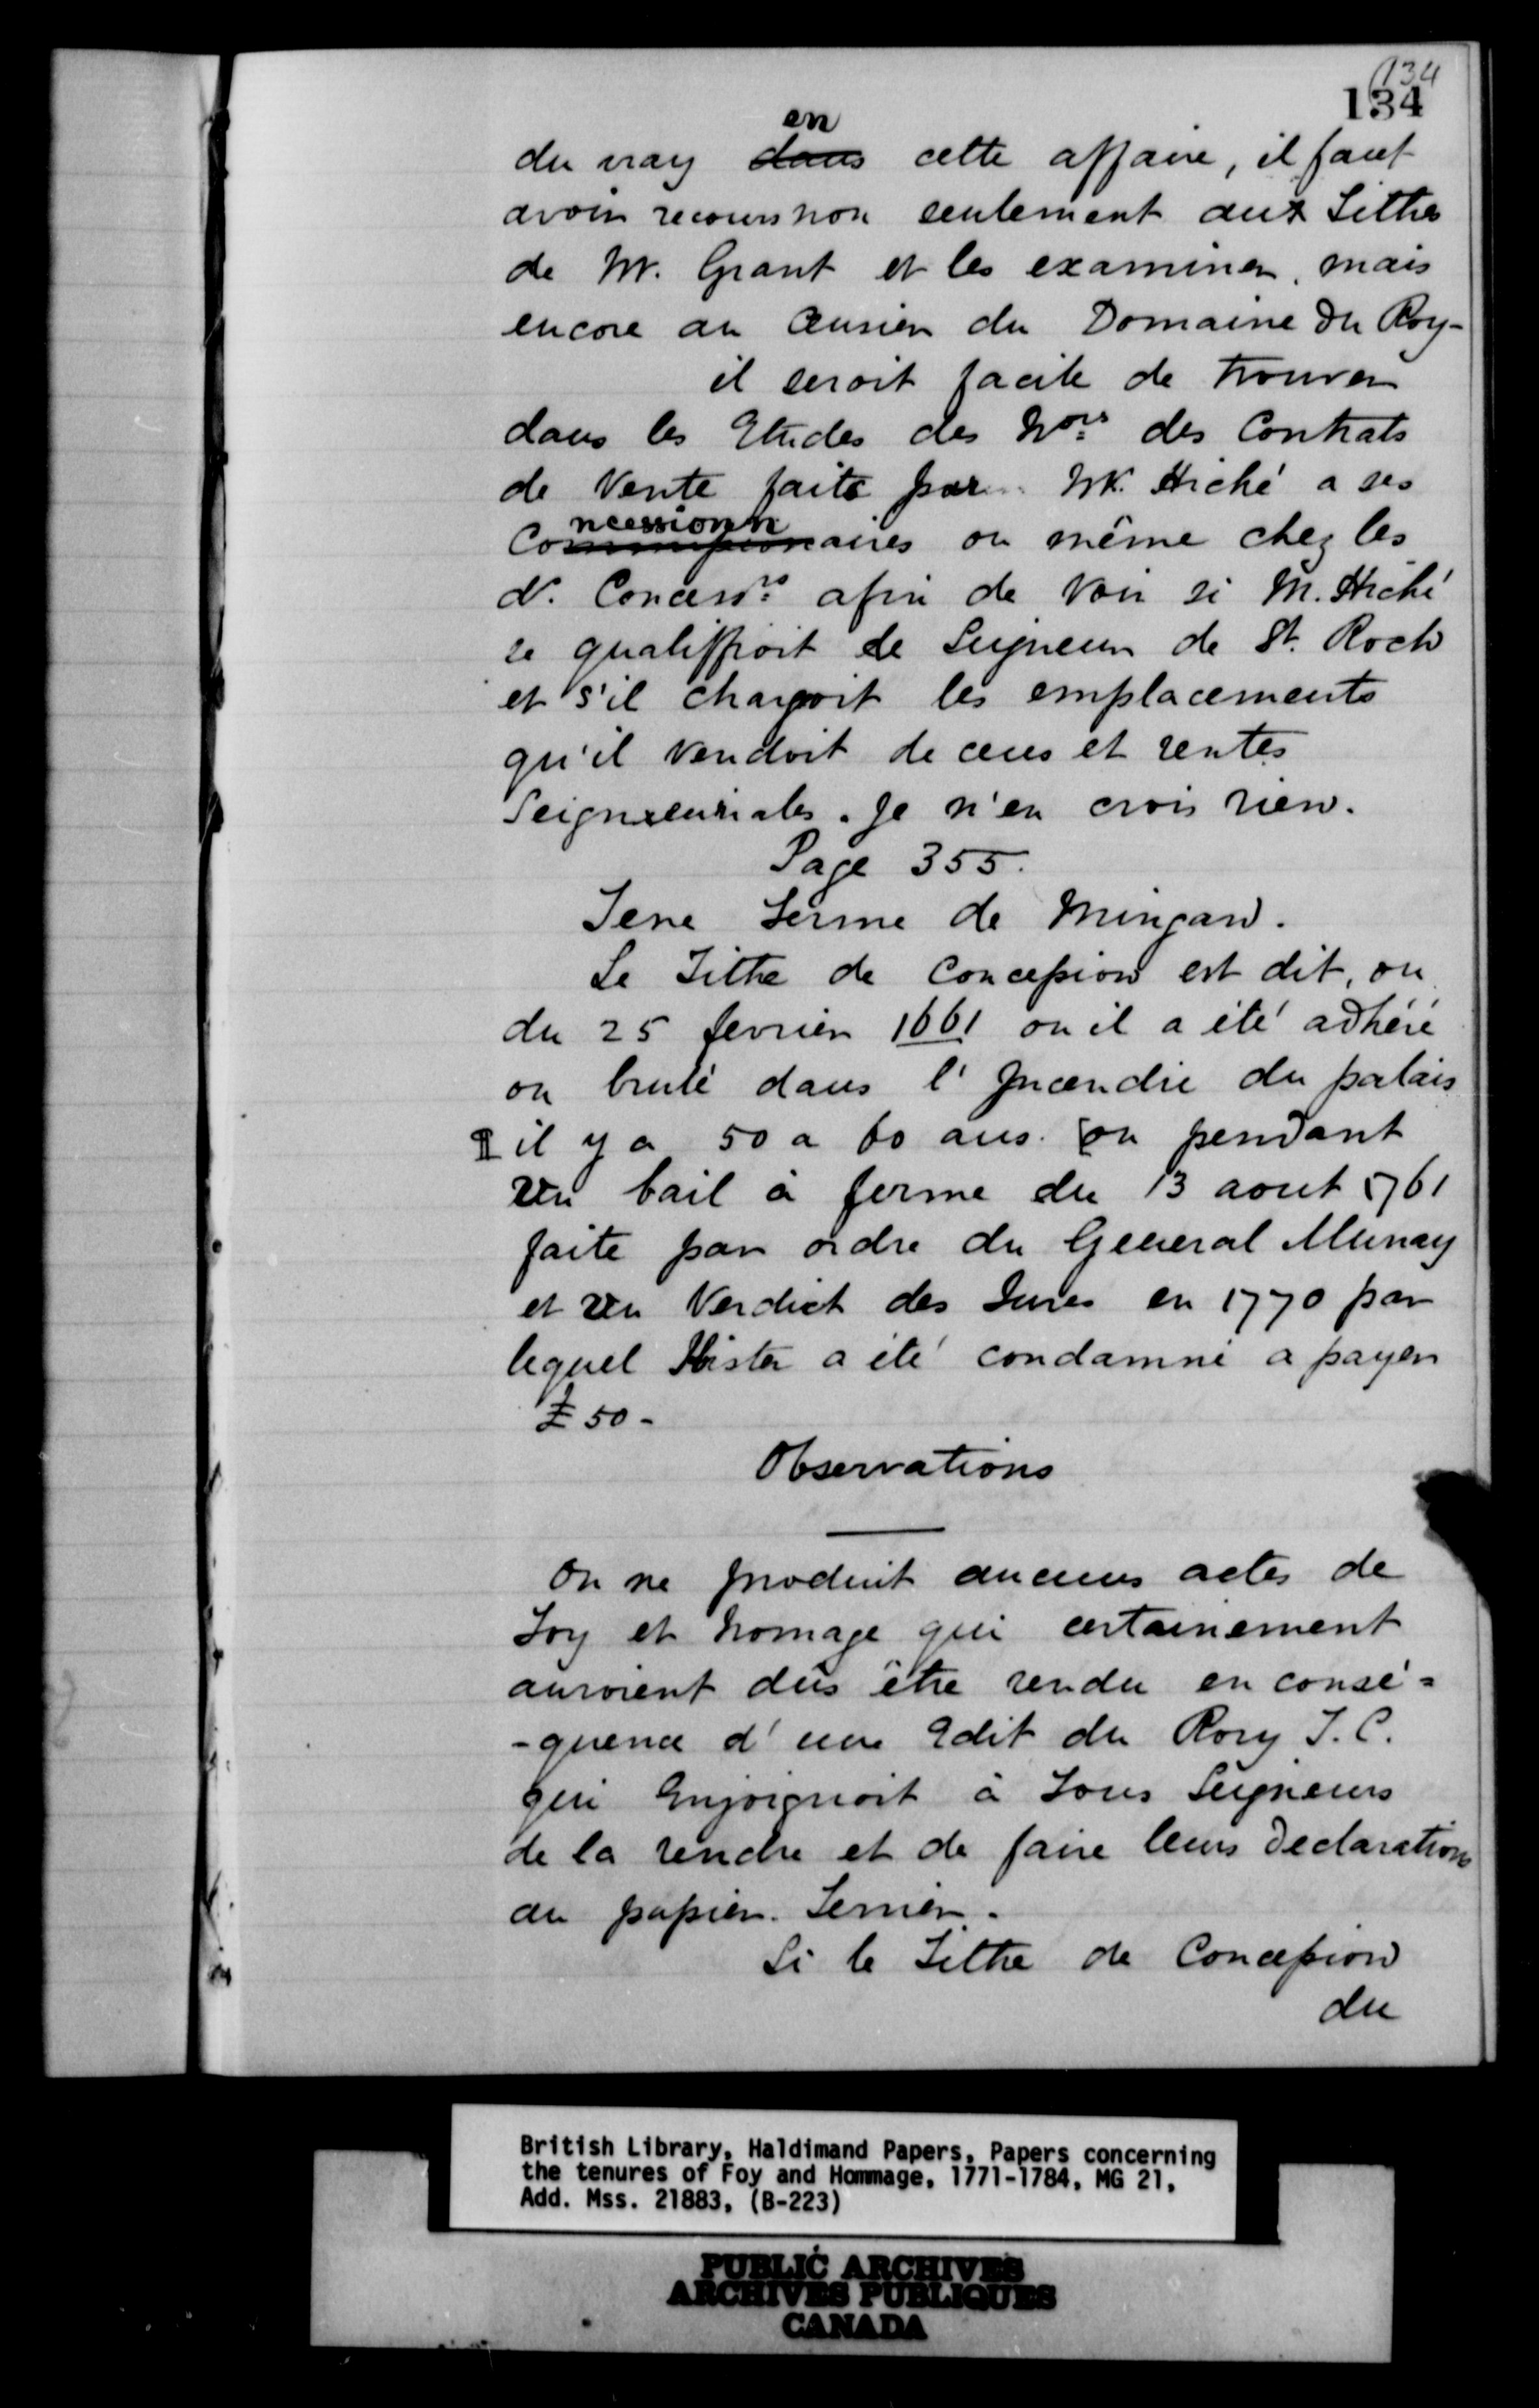 (134
134
en
du vray dans cette affaire, il faut
avoir recours non seulement aux Tittres
de Mr. Grant et les examiner, mais
encore au Censier du Domaine du Roy-
il seroit facile de trouver
dans les Etudes des Nores des Contrats
de Vente faite par Mr. Hiché a ses
ncessionn
Commissionaires ou même chez les
d. Concessres afin de Voir si M. Hiché
se qualiffioit de Seigneur de St. Roch
et s'il chargoit les emplacements
qu'il vendoit de cens et rentes
Seigneuriales. Je n'en crois rien.
Page 355.
Terre Ferme de Mingan.
Le Tittre de Concession est dit, ou
du 25 fevrier 1661 ou il a été adhéré
ou brulé dans l'Incendie du palais
il y a 50 a 60 ans. on pendant
Un bail à ferme du 13 aout 1761
faite par ordre du General Murray
et Un Verdict des Jures en 1770 par
lequel Hister a été condamné a payer
£ 50-
Observations
On ne produit aucuns actes de
Foy et homage qui certainement
auroient dûs être rendu en consé=
-quence d'une Edit du Roy T. C.
qui Enjoignoit à Tous Seigneurs
de la rendre et de faire leurs declarations
au papier. Terrier.
Si le Tittre de Concession
du
British Library, Haldimand Papers, Papers concerning
the tenures of Foy and Hommage, 1771-1784, MG 21,
Add. Mss. 21883, (B-223)
PUBLIC ARCHIVES
ARCHIVES PUBLIQUES
CANADA